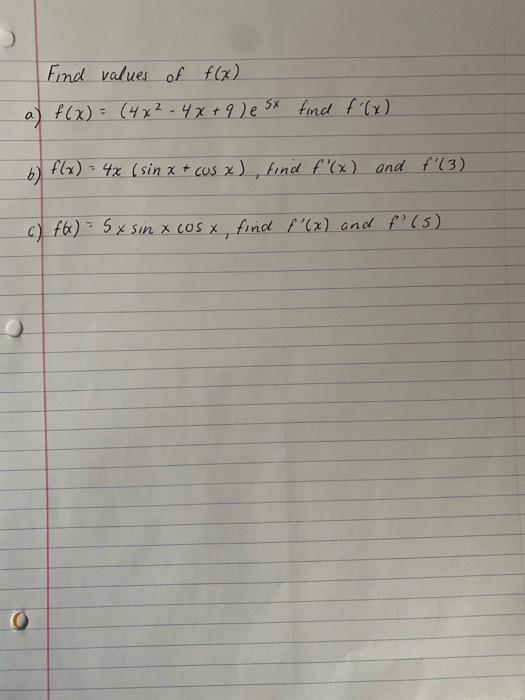 Find values of f(x)
a) f(x) = (4x² - 4x + 9)e⁵ˣ find f'(x)
b) f(x) = 4x (sin x + cos x), find f'(x) and f'(3)
c) f(x) = 5x sin x cos x, find f'(x) and f'(5)